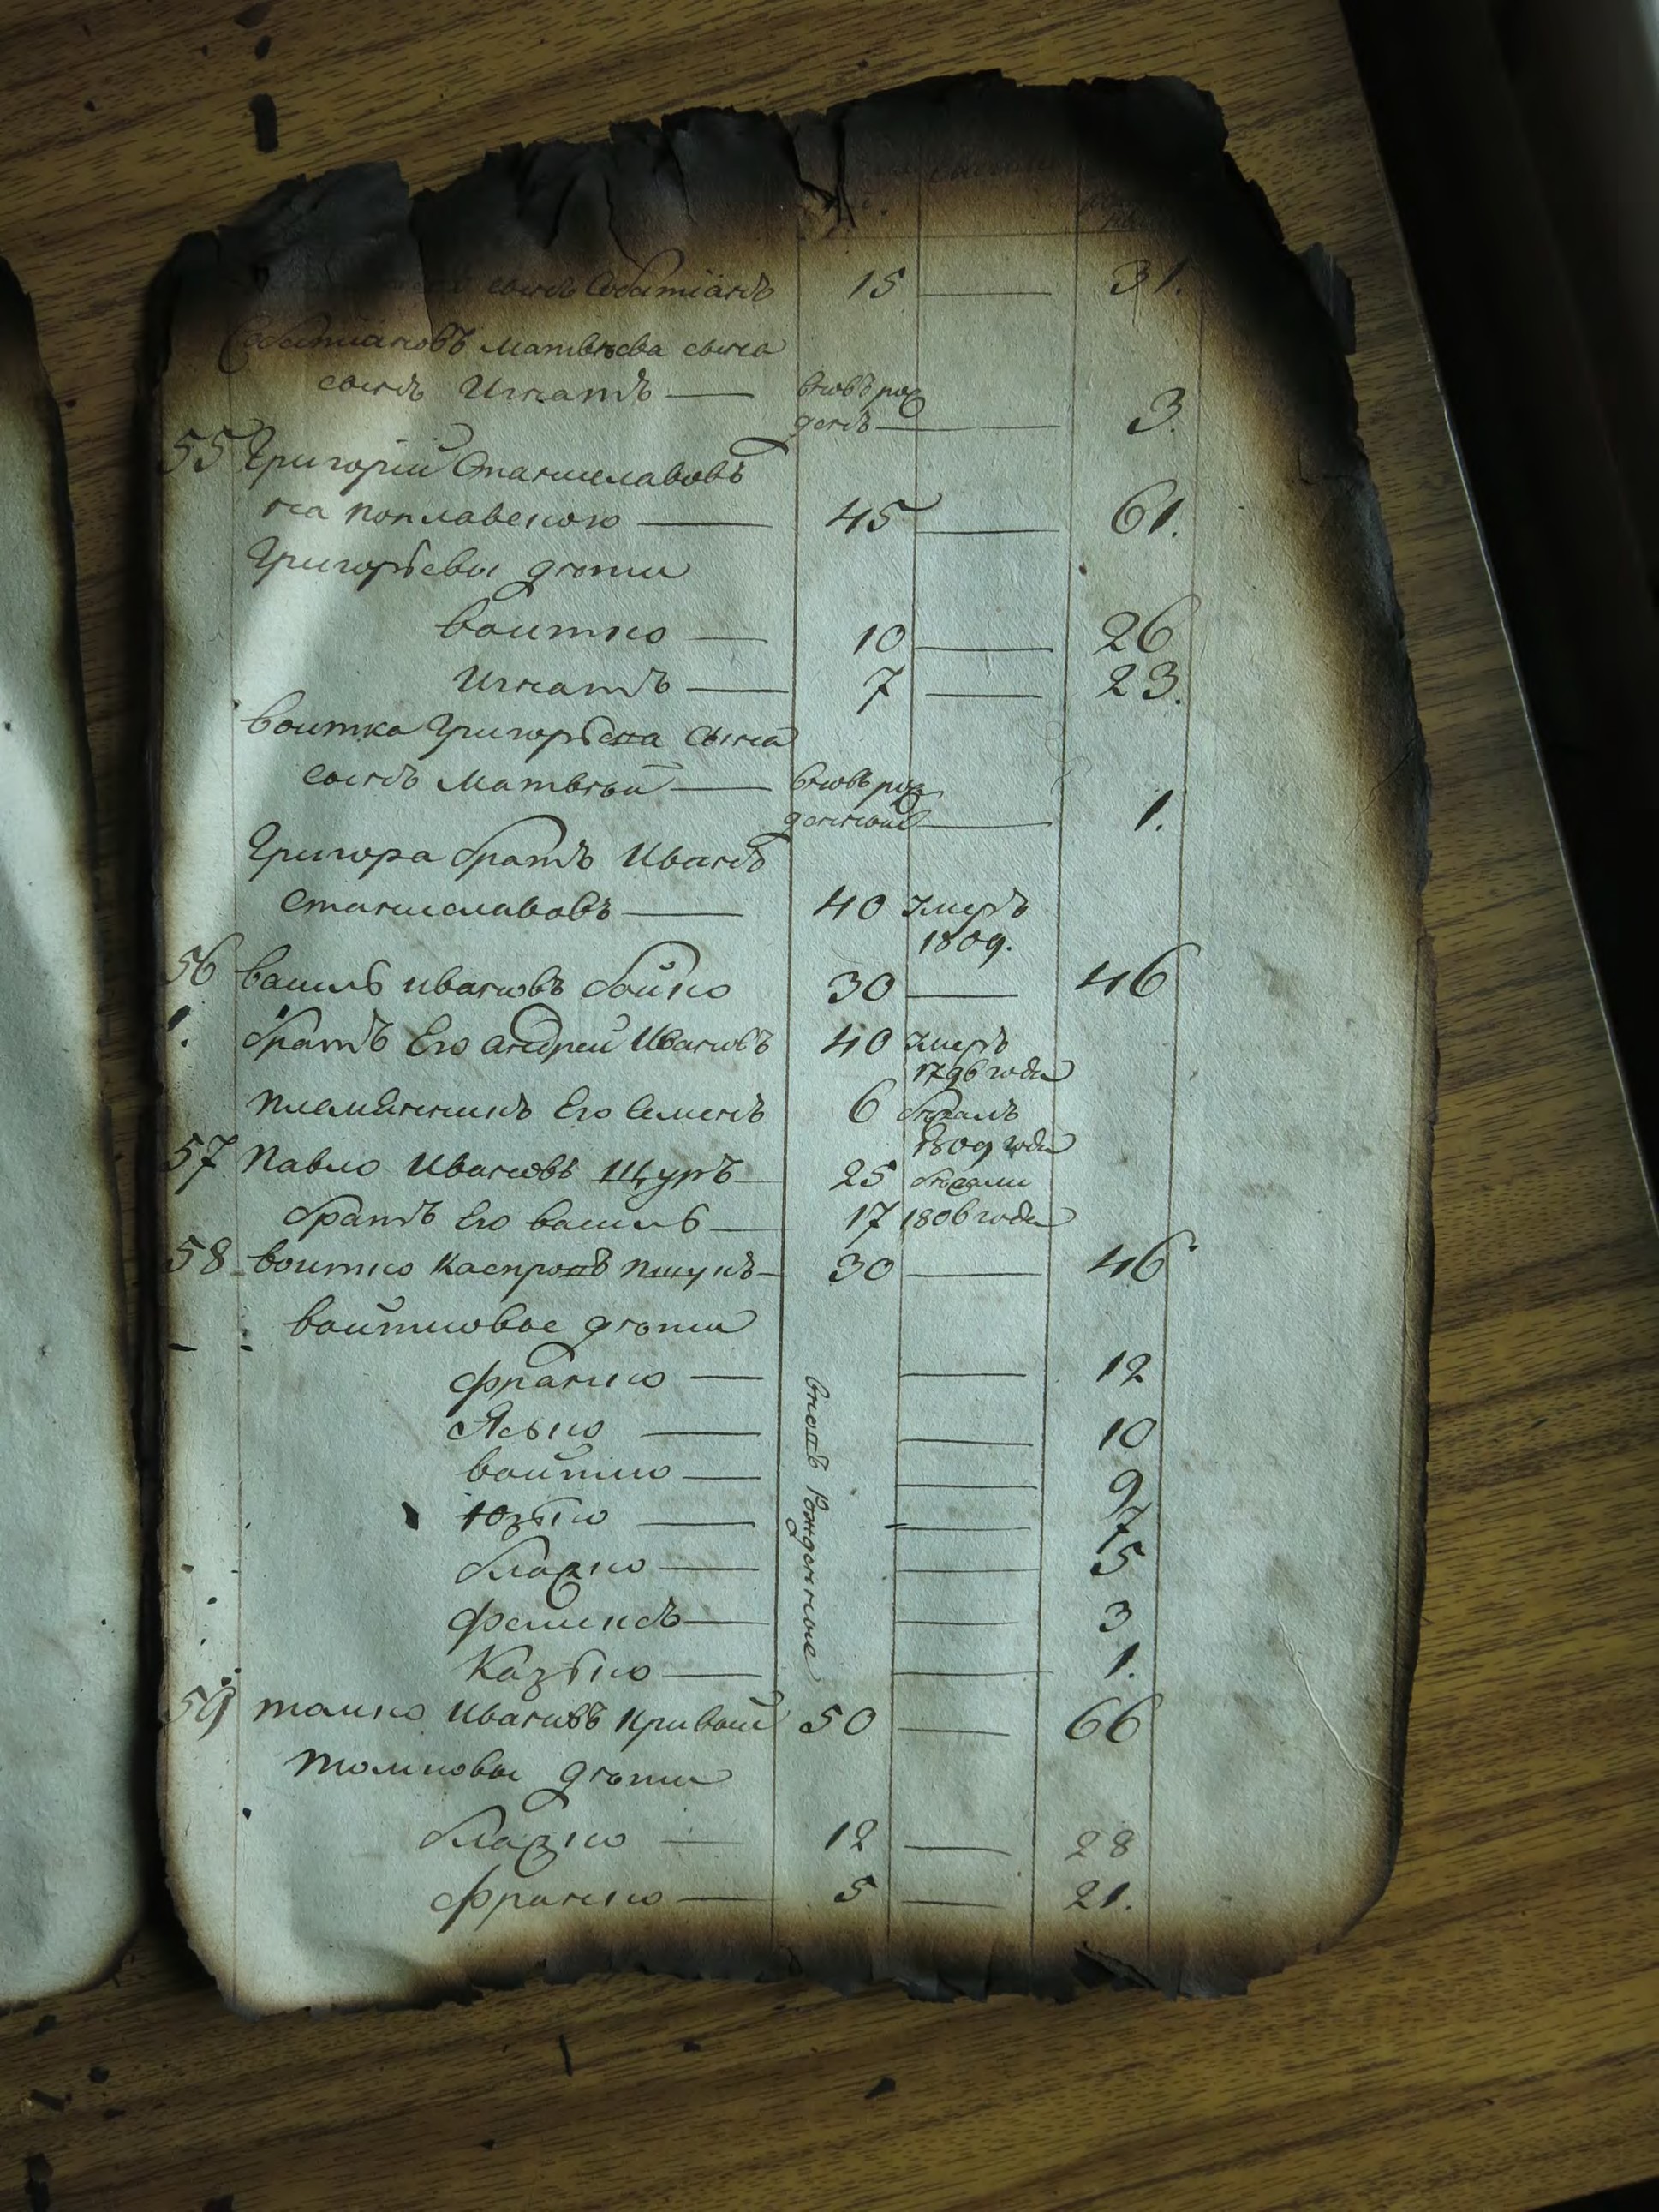 сынъ Собатіанъ 15 — 31.
Собатіановъ Матвѣева сына
сынъ Игнатъ — вновь рож
денъ — 3.
55 Григорій Станиславовъ
на Поплавского — 45 — 61.
Григорьевы дѣти
Воитко — 10 — 26
Игнатъ — 7 — 23.
Воитка Григорьева сына
сынъ Матвѣй — вновь рож
денный — 1.
Григора братъ Иванъ
Станиславовъ — 40 умеръ
1809.
56 Василь Ивановъ Бойко 30 — 46
братъ Его Андрей Ивановъ 40 умеръ
1796 года
племянникъ Его Семенъ 6 бежалъ
1809 года
57 Павло Ивановъ Щуръ — 25 бежали
братъ Его Василь — 17 1806 года
58 Воитко Каспровъ Пшукъ — 30 — 46
Войтковые дѣти
Франко — — 12
Ясько — — 10
Войтко — — 9
Юзько — — 7
Блажко — — 5
Феликсъ — — 3
Казько — — 1.
вновь рожденные
59 Томко Ивановъ Кривой 50 — 66
Томковы дѣти
Блазко — 12 — 28
Франко — 5 — 21.